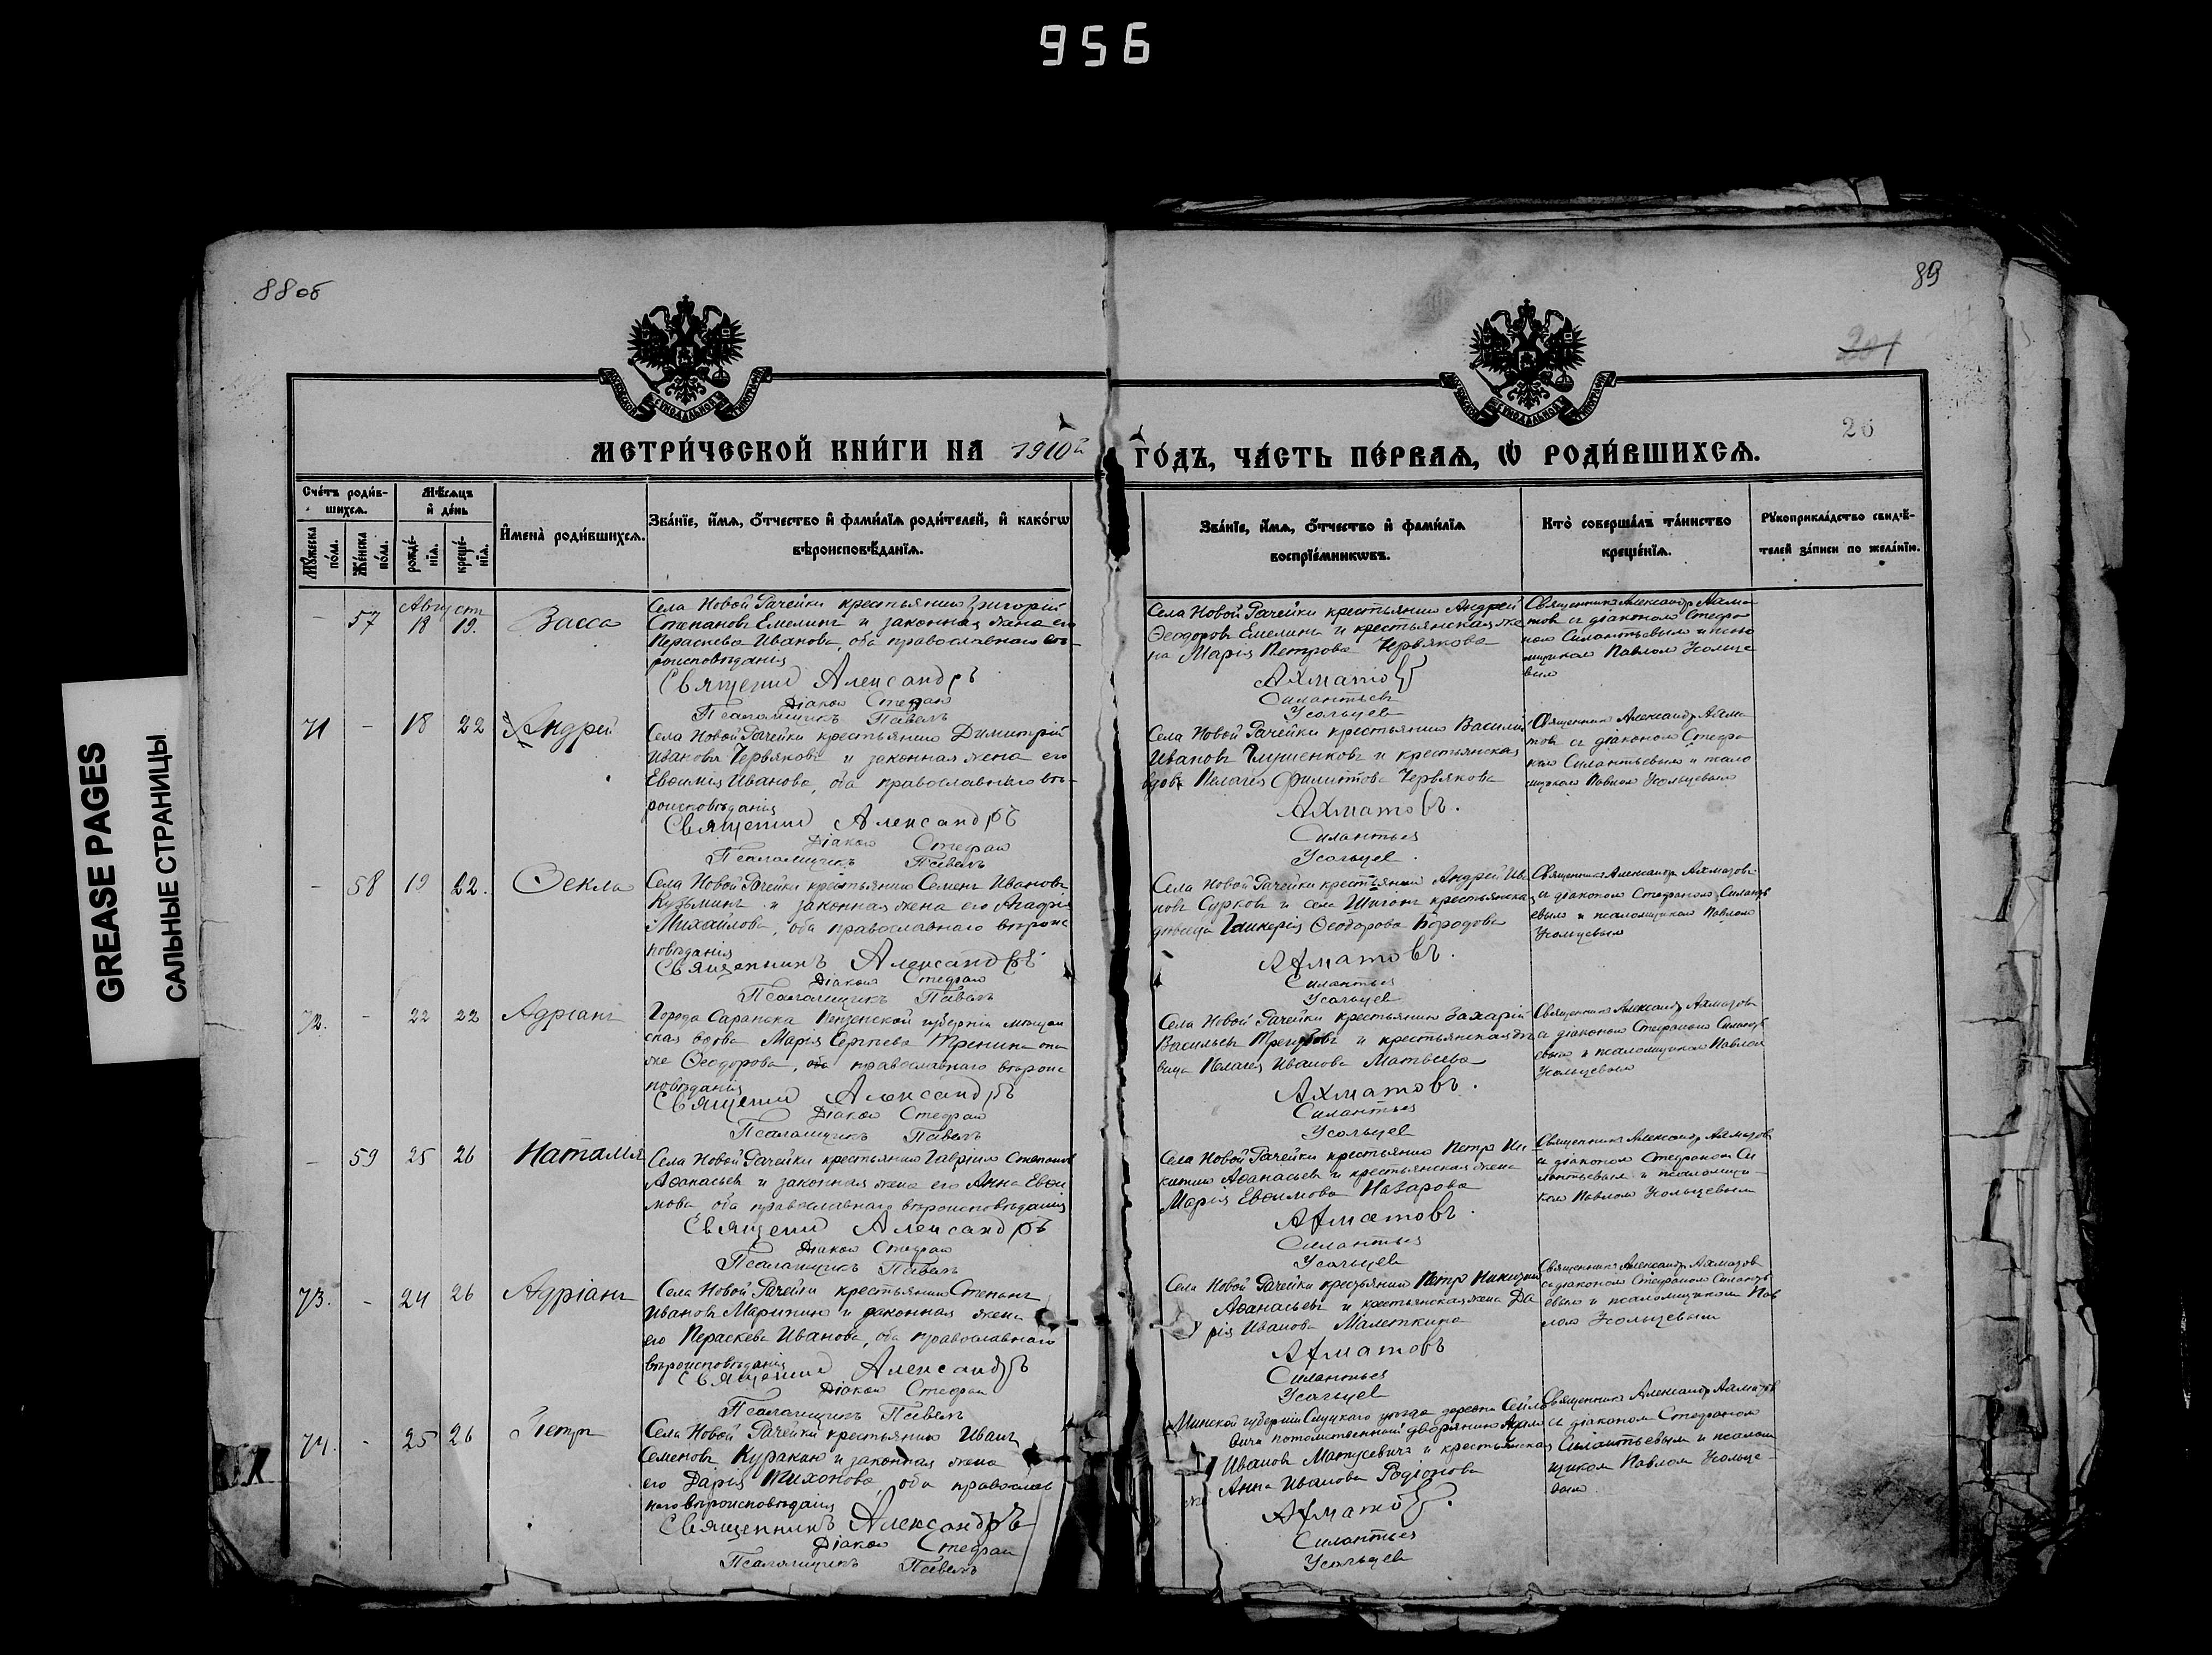 956
88 об
89
201
26
GREASE PAGES
САЛЬНЫЕ СТРАНИЦЫ
МЕТРИ́ЧЕСКОЙ КНИ́ГИ НА 1910й ГО́ДЪ, ЧА́СТЬ ПЕ́РВАѦ, Ѡ РОДИ́ВШИХСѦ.
Сче́тъ роди́в-
шихсѧ.
Мꙋжеска по́ла.
Же́нска по́ла.
Мѣ́сѧцъ
и҆ де́нь
рожде́-
нїѧ.
креще́-
нїѧ.
И҆мена̀ роди́вшихсѧ.
Зва́нїе, и҆́мѧ, ѻ҆́тчество и҆ фами́лїѧ роди́телей, и҆ како́гѡ
вѣроисповѣ́данїѧ.
Зва́нїе, и҆́мѧ, ѻ҆́тчество и҆ фами́лїѧ
воспрїе́мникѡвъ.
Кто̀ соверша́лъ та́инство
креще́нїѧ.
Рꙋкоприкла́дство свидѣ́-
телей за́писи по жела́нїю.
Августъ
- 57 18 19. Васса
Села Новой Рачейки крестьянин Григорій
Степановъ Емелинъ и законная жена его
Параскева Иванова, оба православнаго вѣ-
роисповѣданія
Священник Александръ
Діакон Стефан
Псаломщикъ Павелъ
Села Новой Рачейки крестьянин Андрей
Ѳеодоровъ Емелинъ и крестьянская же
на Марія Петрова Червякова
Ахматов
Силантьев
Усольцев
Священникъ Александр Ахма
тов съ діаконом Стефа
ном Силантьевым и псало
мщиком Павлом Усольце
вым
71 - 18 22 Андрей
Села Новой Рачейки крестьянин Димитрій
Ивановъ Червяковъ и законная жена его
Евѳимія Иванова, оба православнаго вѣ-
роисповѣданія
Священник Александръ
Діакон Стефан
Псаломщикъ Павелъ
Села Новой Рачейки крестьянин Василій
Ивановъ и крестьянская
вдова Пелагея Филиппова Червякова
Ахматовъ.
Силантьев
Усольцев.
Священник Александр Ахма
тов съ діаконом Стефа
ном Силантьевым и псало
мщиком Павлом Усольцевым
- 58 19 22. Ѳекла
Села Новой Рачейки крестьянин Семенъ Ивановъ
Кузьминъ и законная жена его Агафія
Михайлова, оба православнаго вѣроис
повѣданія
Священникъ Александръ
Діакон Стефан
Псаломщикъ Павелъ
Села Новой Рачейки крестьянин Андрей Ива
новъ Сурковъ и села Шигонъ крестьянская
дѣвица Гликерія Ѳеодорова Бородова
Ахматовъ.
Силантьев
Усольцев
Священник Александр Ахматовъ
съ діаконом Стефаном Силанть
евым и псаломщиком Павлом
Усольцевым
72. - 22 22 Адріанъ
Города Саранска Пензенской губерніи мѣщан
ская вдова Марія Сергѣева она
же Ѳеодорова, православнаго вѣроис
повѣданія
Священник Александръ
Діакон Стефан
Псаломщикъ Павелъ
Села Новой Рачейки крестьянин Захарій
Васильевъ и крестьянская дѣ
вица Пелагея Иванова Матвеева
Ахматовъ.
Силантьев
Усольцев
Священник Александр Ахматов
съ діаконом Стефаном Силанть
евым и псаломщиком Павлом
Усольцевым
- 59 25 26 Наталія
Села Новой Рачейки крестьянин Гавріил Степановъ
Аѳанасьев и законная жена его Анна Евѳи
мова, оба православнаго вѣроисповѣданія
Священник Александръ
Діакон Стефан
Псаломщикъ Павелъ
Села Новой Рачейки крестьянин Петр Ни
китин Аѳанасьев и крестьянская жена
Марія Евѳимова Назарова
Ахматовъ.
Силантьев
Усольцев
Священник Александр Ахматов
съ діаконом Стефаном Си
лантьевым и псаломщи-
ком Павлом Усольцевым
73. - 24 26 Адріанъ
Села Новой Рачейки крестьянин Степанъ
Ивановъ Маринин и законная жена
его Параскева Иванова, оба православнаго
вѣроисповѣданія
Священник Александръ
Діакон Стефан
Псаломщикъ Павелъ
Села Новой Рачейки крестьянин Петр Никитин
Аѳанасьевъ и крестьянская жена Да
рія Иванова Малеткина
Ахматовъ
Силантьев
Усольцев
Священник Александр Ахматов
съ діаконом Стефаном Силанть
евым и псаломщиком Пав
лом Усольцевым
74. - 25 26 Петръ
Села Новой Рачейки крестьянин Иванъ
Семеновъ Куракин и законная жена
его Дарія Тихонова, оба православ
наго вѣроисповѣданія
Священникъ Александръ
Діакон Стефан
Псаломщикъ Павелъ
Минской губерніи Слуцкаго уѣзда деревни
потомственный дворянин Адам
Иванов Матусевичъ и крестьянская
Анна Иванова Родіонова
Ахматов.
Силантьев
Усольцев
Священник Александр Ахматов
съ діаконом Стефаном
Силантьевым и псалом
щиком Павлом Усольце-
вым